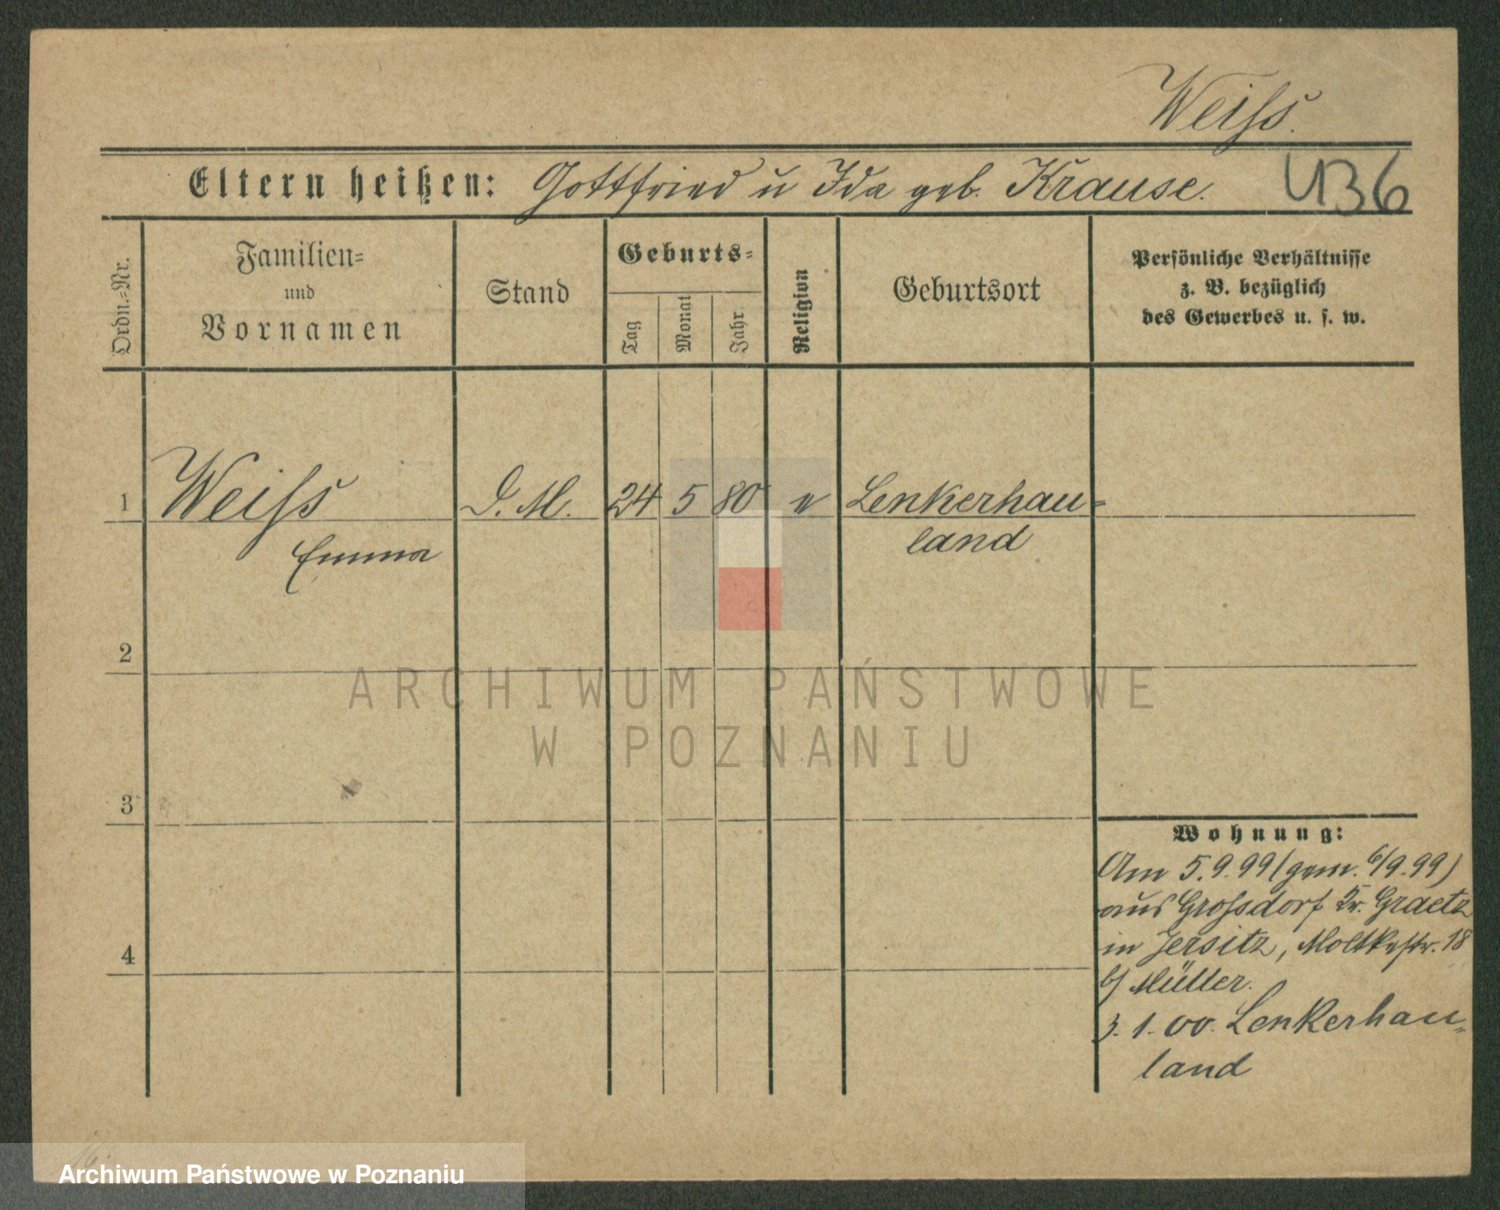 Weiſs.
Eltern heißen: Gottfried u Ida geb. Krause.
436
Ordn.-Nr.
Familien-
und
Vornamen
Stand
Geburts-
Tag
Monat
Jahr
Religion
Geburtsort
Persönliche Verhältnisse
z. B. bezüglich
des Gewerbes u. s. w.
1 Weiſs D. M. 24 5 80 e Lenkerhau-
Emma land
2
3
4
Wohnung:
Am 5.9.99 (gem. 6/9.99)
aus Groſsdorf Kr. Graetz
in Jersitz, Moltkestr. 18
b/ Müller.
3.1.00. Lenkerhau-
land
ARCHIWUM PAŃSTWOWE
W POZNANIU
Archiwum Państwowe w Poznaniu